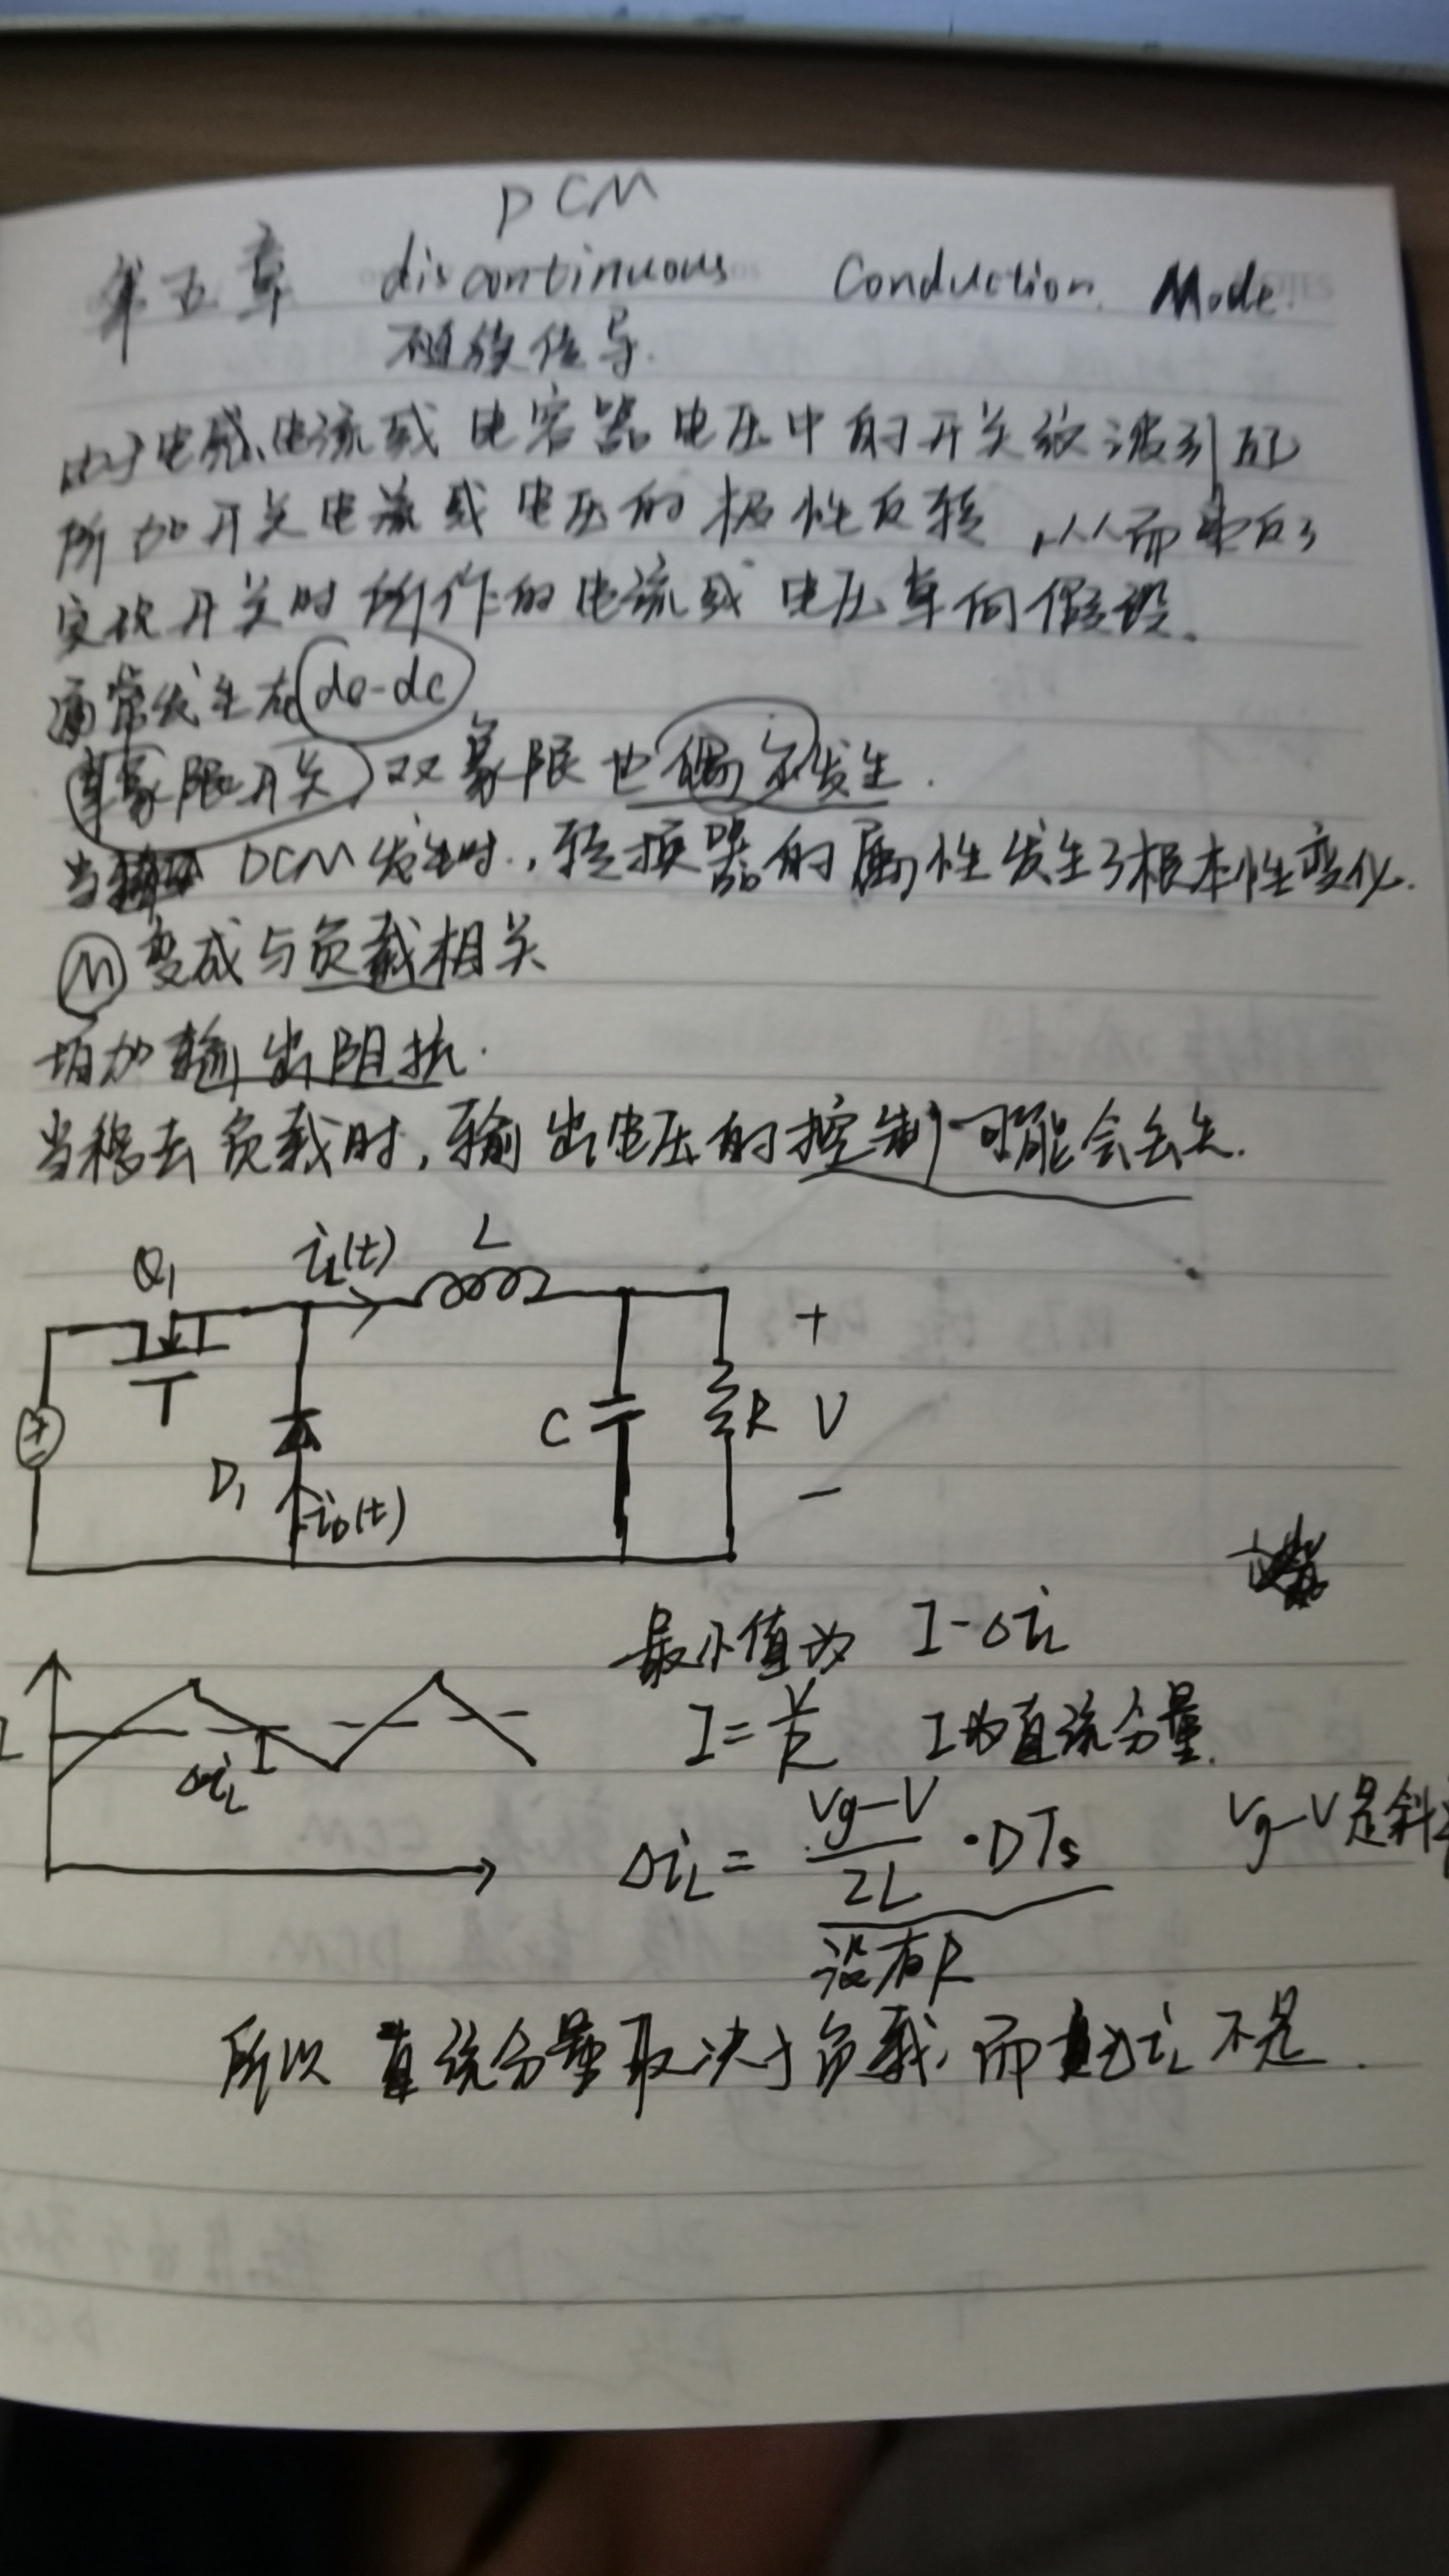 DCM
第五章 discontinuous Conduction Mode
不连续传导.
由于电感电流或电容器电压中的开关纹波引起
所加开关电流或电压的极性反转,从而违反了
实现开关时所作的电流或电压单向假设.
通常发生在dc-dc
单象限开关,双象限也偶尔发生.
当 DCM发生时,转换器的属性发生了根本性变化.
M 变成与负载相关
增加输出阻抗.
当移去负载时,输出电压的控制可能会丢失.
Q1 iL(t) L
+
C R V
D1 iD(t)
−
最小值为 I-ΔiL
I=V/R I为直流分量.
ΔiL
ΔiL = (Vg-V)/2L ·DTs Vg-V是斜
没有R
所以 直流分量取决于负载,而ΔiL不是.